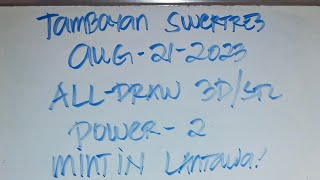 TAMBAYAN SWERTRES
AUG-21-2023
ALL-DRAW 3D/STL
POWER-2
MINTIN LANTAWA.!